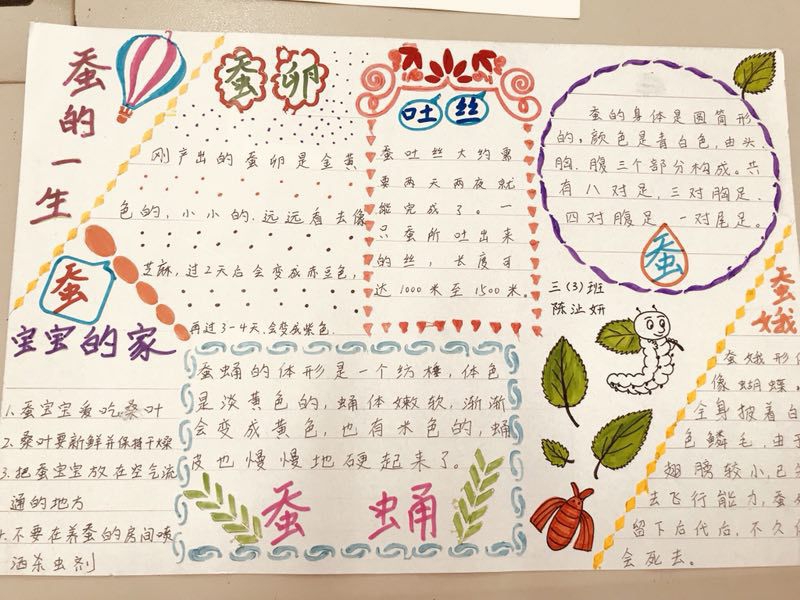 蚕的一生
蚕卵
刚产出的蚕卵是金黄
色的，小小的，远远看去像
芝麻，过2天后会变成赤豆色，
再过3-4天，会变成紫色.
吐丝
蚕吐丝大约需
要两天两夜就
能完成了。一
只蚕所吐出来
的丝，长度可
达1000米至1500米。
蚕的身体是圆筒形
的，颜色是青白色，由头、
胸、腹三个部分构成。共
有八对足，三对胸足、
四对腹足，一对尾足。
蚕
三(3)班
陈沚妍
蚕
宝宝的家
1.蚕宝宝爱吃桑叶
2.桑叶要新鲜并保持干燥
3.把蚕宝宝放在空气流
通的地方
4.不要在养蚕的房间喷
洒杀虫剂
蚕蛹的体形是一个纺棰，体色
是淡黄色的，蛹体嫩软，渐渐
会变成黄色，也有米色的，蛹
皮也慢慢地硬起来了。
蚕蛹
蚕娥
蚕娥形体
像蝴蝶。
全身披着白
色鳞毛，由于
翅膀较小，已失
去飞行能力，蚕
留下后代后，不久
会死去。